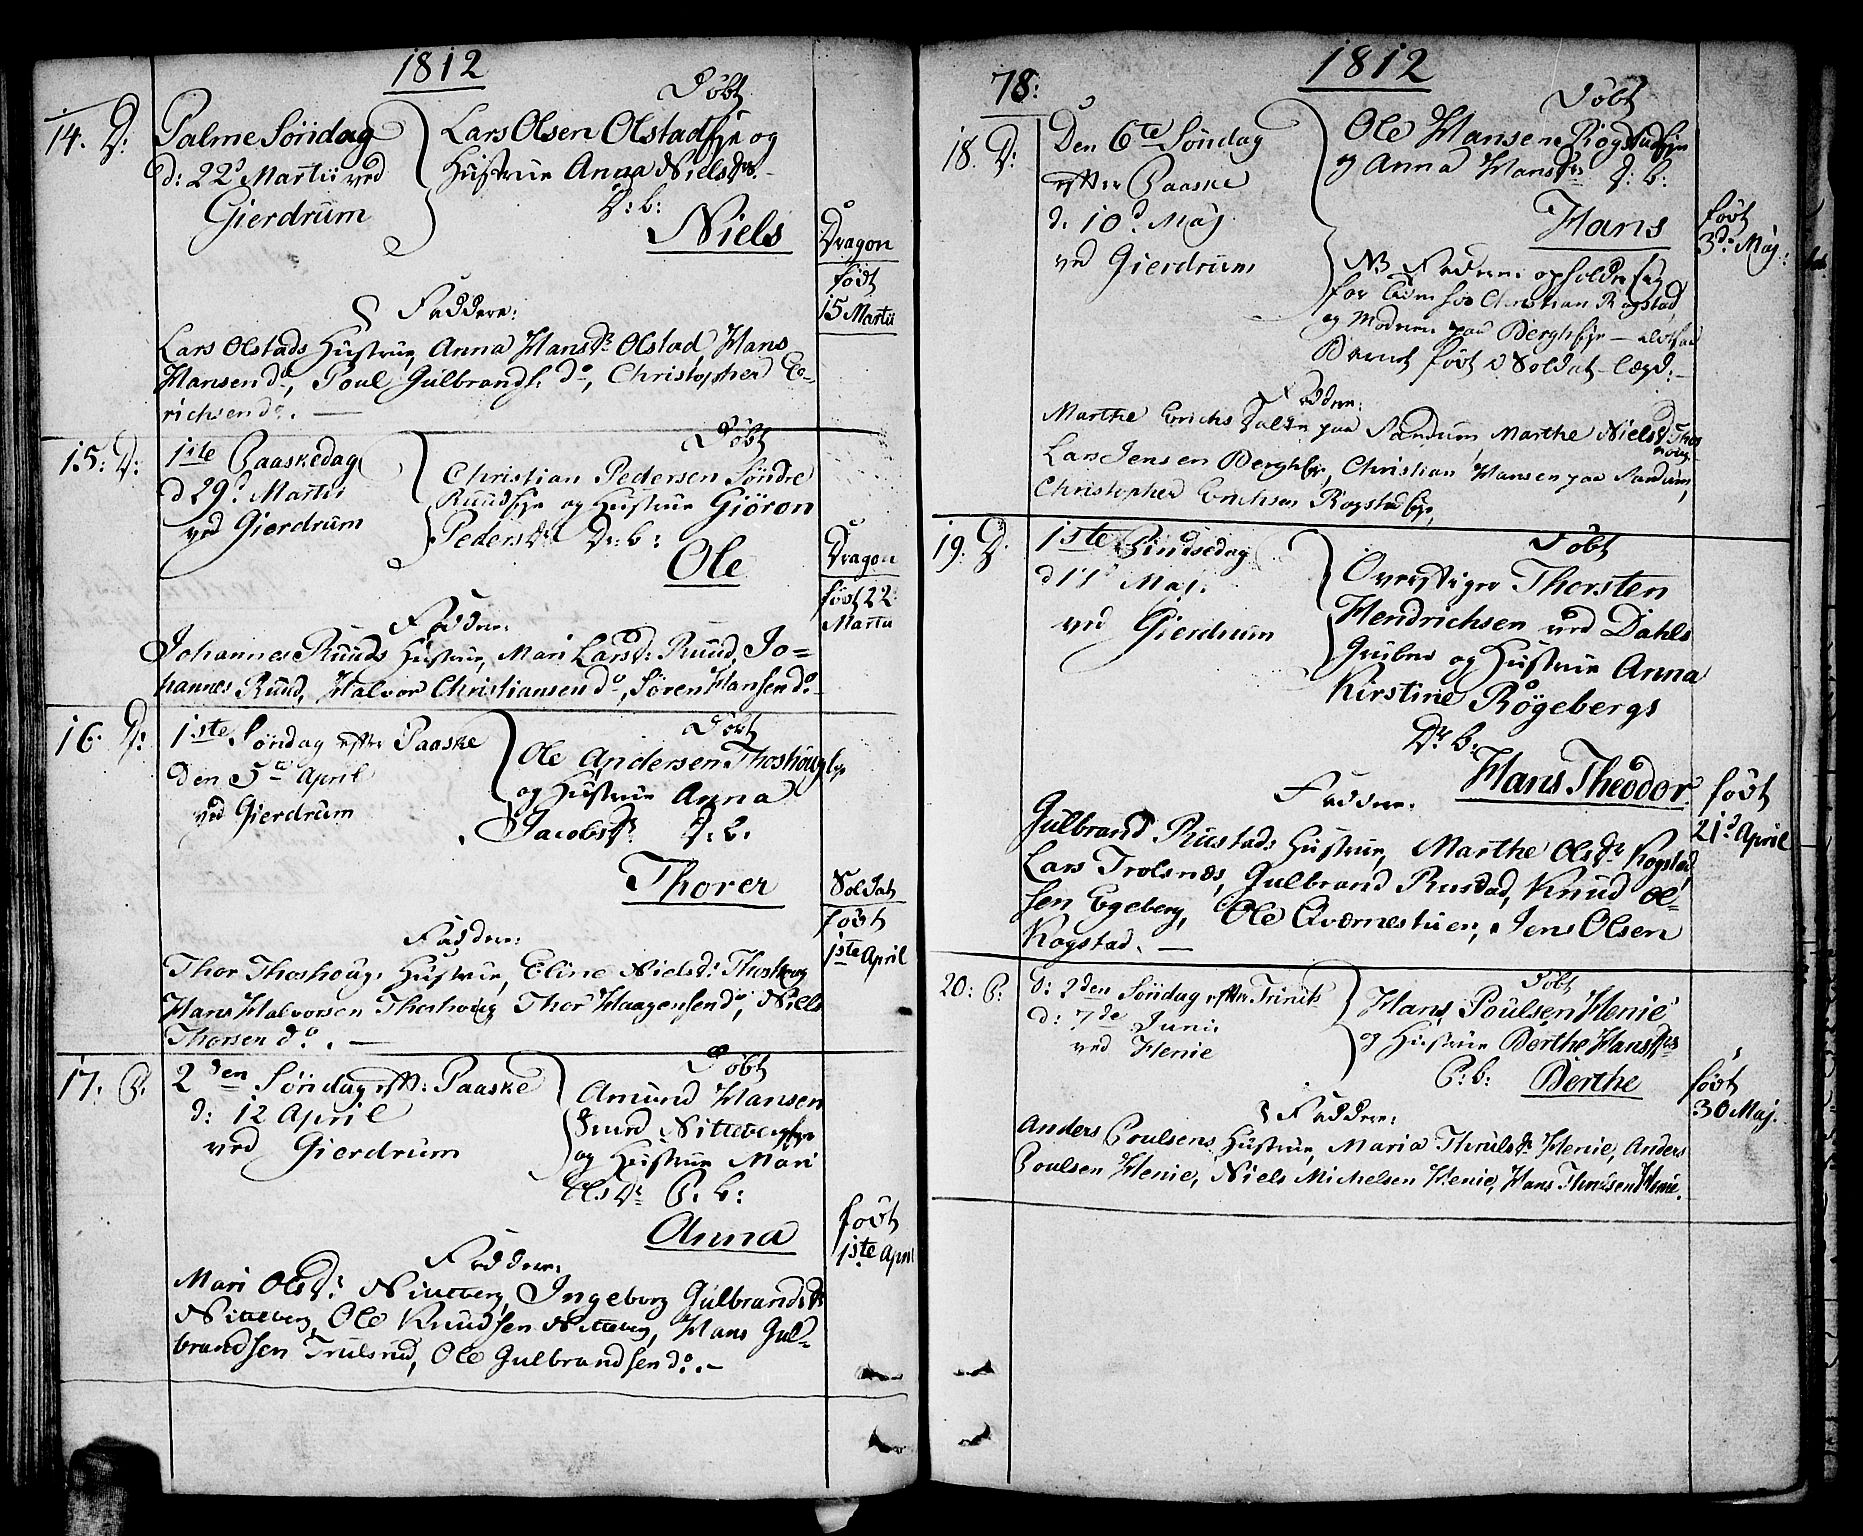 1812
14. D: Palme Söndag
d: 22d Martii ved
Gierdrum
Döbt
Lars Olsen Olstad eye og
Hustrue Anna Nielsdr.
D: b:
Niels
Dragon
födt
15 Martii
Faddere:
Lars Olstads Hustrue, Anna Hansdr Olstad, Hans
Hansen do, Poul Gulbrands. do, Christopher E-
richsen do. —
15: D: 1ste Paaskedag
d 29d Martii
ved Gierdrum
Döbt
Christian Pedersen Söndre
Ruudseye og Hustrue Giöron
Pedersdr D: b:
Ole
Dragon
födt 22
Martii
Faddere:
Johannes Ruuds Hustrue, Mari Larsd: Ruud, Jo-
hannes Ruud, Halvor Christiansen do, Sören Hansen do.
16. D: 1ste Söndag efter Paaske
den 5te April
ved Gierdrum
Döbt
Ole Andersen Thoshougeye
og Hustrue Anna
Jacobsdr D: b:
Thorer
Soldat
födt
1ste April
Faddere:
Thor Thoshougs Hustrue, Eline Nielsd: Thoshoug
Hans Halvorsen Thoshoug Thor Haagensen do, Niels
Thorsen do. —
17: P: 2den Söndag eft: Paaske
d: 12 April
ved Gierdrum
Döbt
Amund Hansen
Nitteberg eye
og Hustrue Mari
Olsdr P: b:
Anna
födt
1ste April
Faddere:
Mari Olsdr Nitteberg, Ingeborg Gulbrandsdr
Nitteberg, Ole Knudsen Nitteberg, Hans Gul-
brandsen Trulsrud, Ole Gulbrandsen do. —
78:
1812
18. D: Den 6te Söndag
efter Paaske
d: 10d Maj
ved Gierdrum
Döbt
Ole Hansen Rogstad eye
og Anna Hansdr D: b:
Hans
födt
3d Maj:
NB Faderen opholder sig
for hos Christian Rogstad
og Moderen paa Bergh eye — altsaa
Barnet födt i Soldat-Lægd. —
Faddere:
Marthe Erichs Datter paa Sandum Marthe Nielsd: Thos-
houg
Lars Jensen Bergh eye, Christian Hansen paa Sandum,
Christopher Erichsen Rogstad eye,
19: D: 1ste Pindsedag
d 17d Maj.
ved Gierdrum
Döbt
Overstiger Thorsten
Hendrichsen ved Dahls
Gruber og Hustrue Anna
Kirstine Rögebergs
Dr b:
Hans Theodor
födt
21d April
Faddere:
Gulbrand Rustads Hustrue, Marthe Olsdr Kogstad,
Lars Trolsnæs, Gulbrand Rustad, Knud Ol-
sen Egeberg, Ole Qværnestuen, Jens Olsen
Kogstad. —
20: P: d: 2den Söndag efter Trinit:
d: 7de Juni
ved Henie
Döbt
Hans Poulsen Henie
og Hustrue Berthe Hansdrs
P: b: Berthe
födt
30 Maj.
Faddere:
Anders Poulsens Hustrue, Maria Thrulsdr Henie, Anders
Poulsen Henie, Niels Michelsen Henie, Hans Thrulsen Henie.